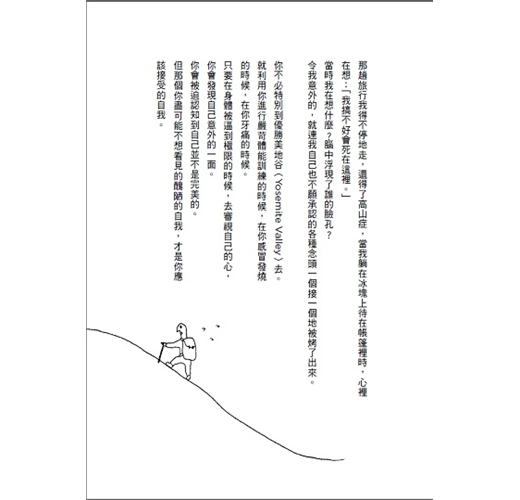 那趟旅行我得不停地走，還得了高山症，當我躺在冰塊上待在帳篷裡時，心裡
在想：「我搞不好會死在這裡。」
當時我在想什麼？腦中浮現了誰的臉孔？
令我意外的，就連我自己也不願承認的各種念頭一個接一個地被烤了出來。
你不必特別到優勝美地谷（Yosemite Valley）去。
就利用你進行嚴苛體能訓練的時候，在你感冒發燒
的時候，在你牙痛的時候。
只要在身體被逼到極限的時候，去審視自己的心，
你會發現自己意外的一面。
你會被迫認知到自己並不是完美的。
但那個你盡可能不想看見的醜陋的自我，才是你應
該接受的自我。